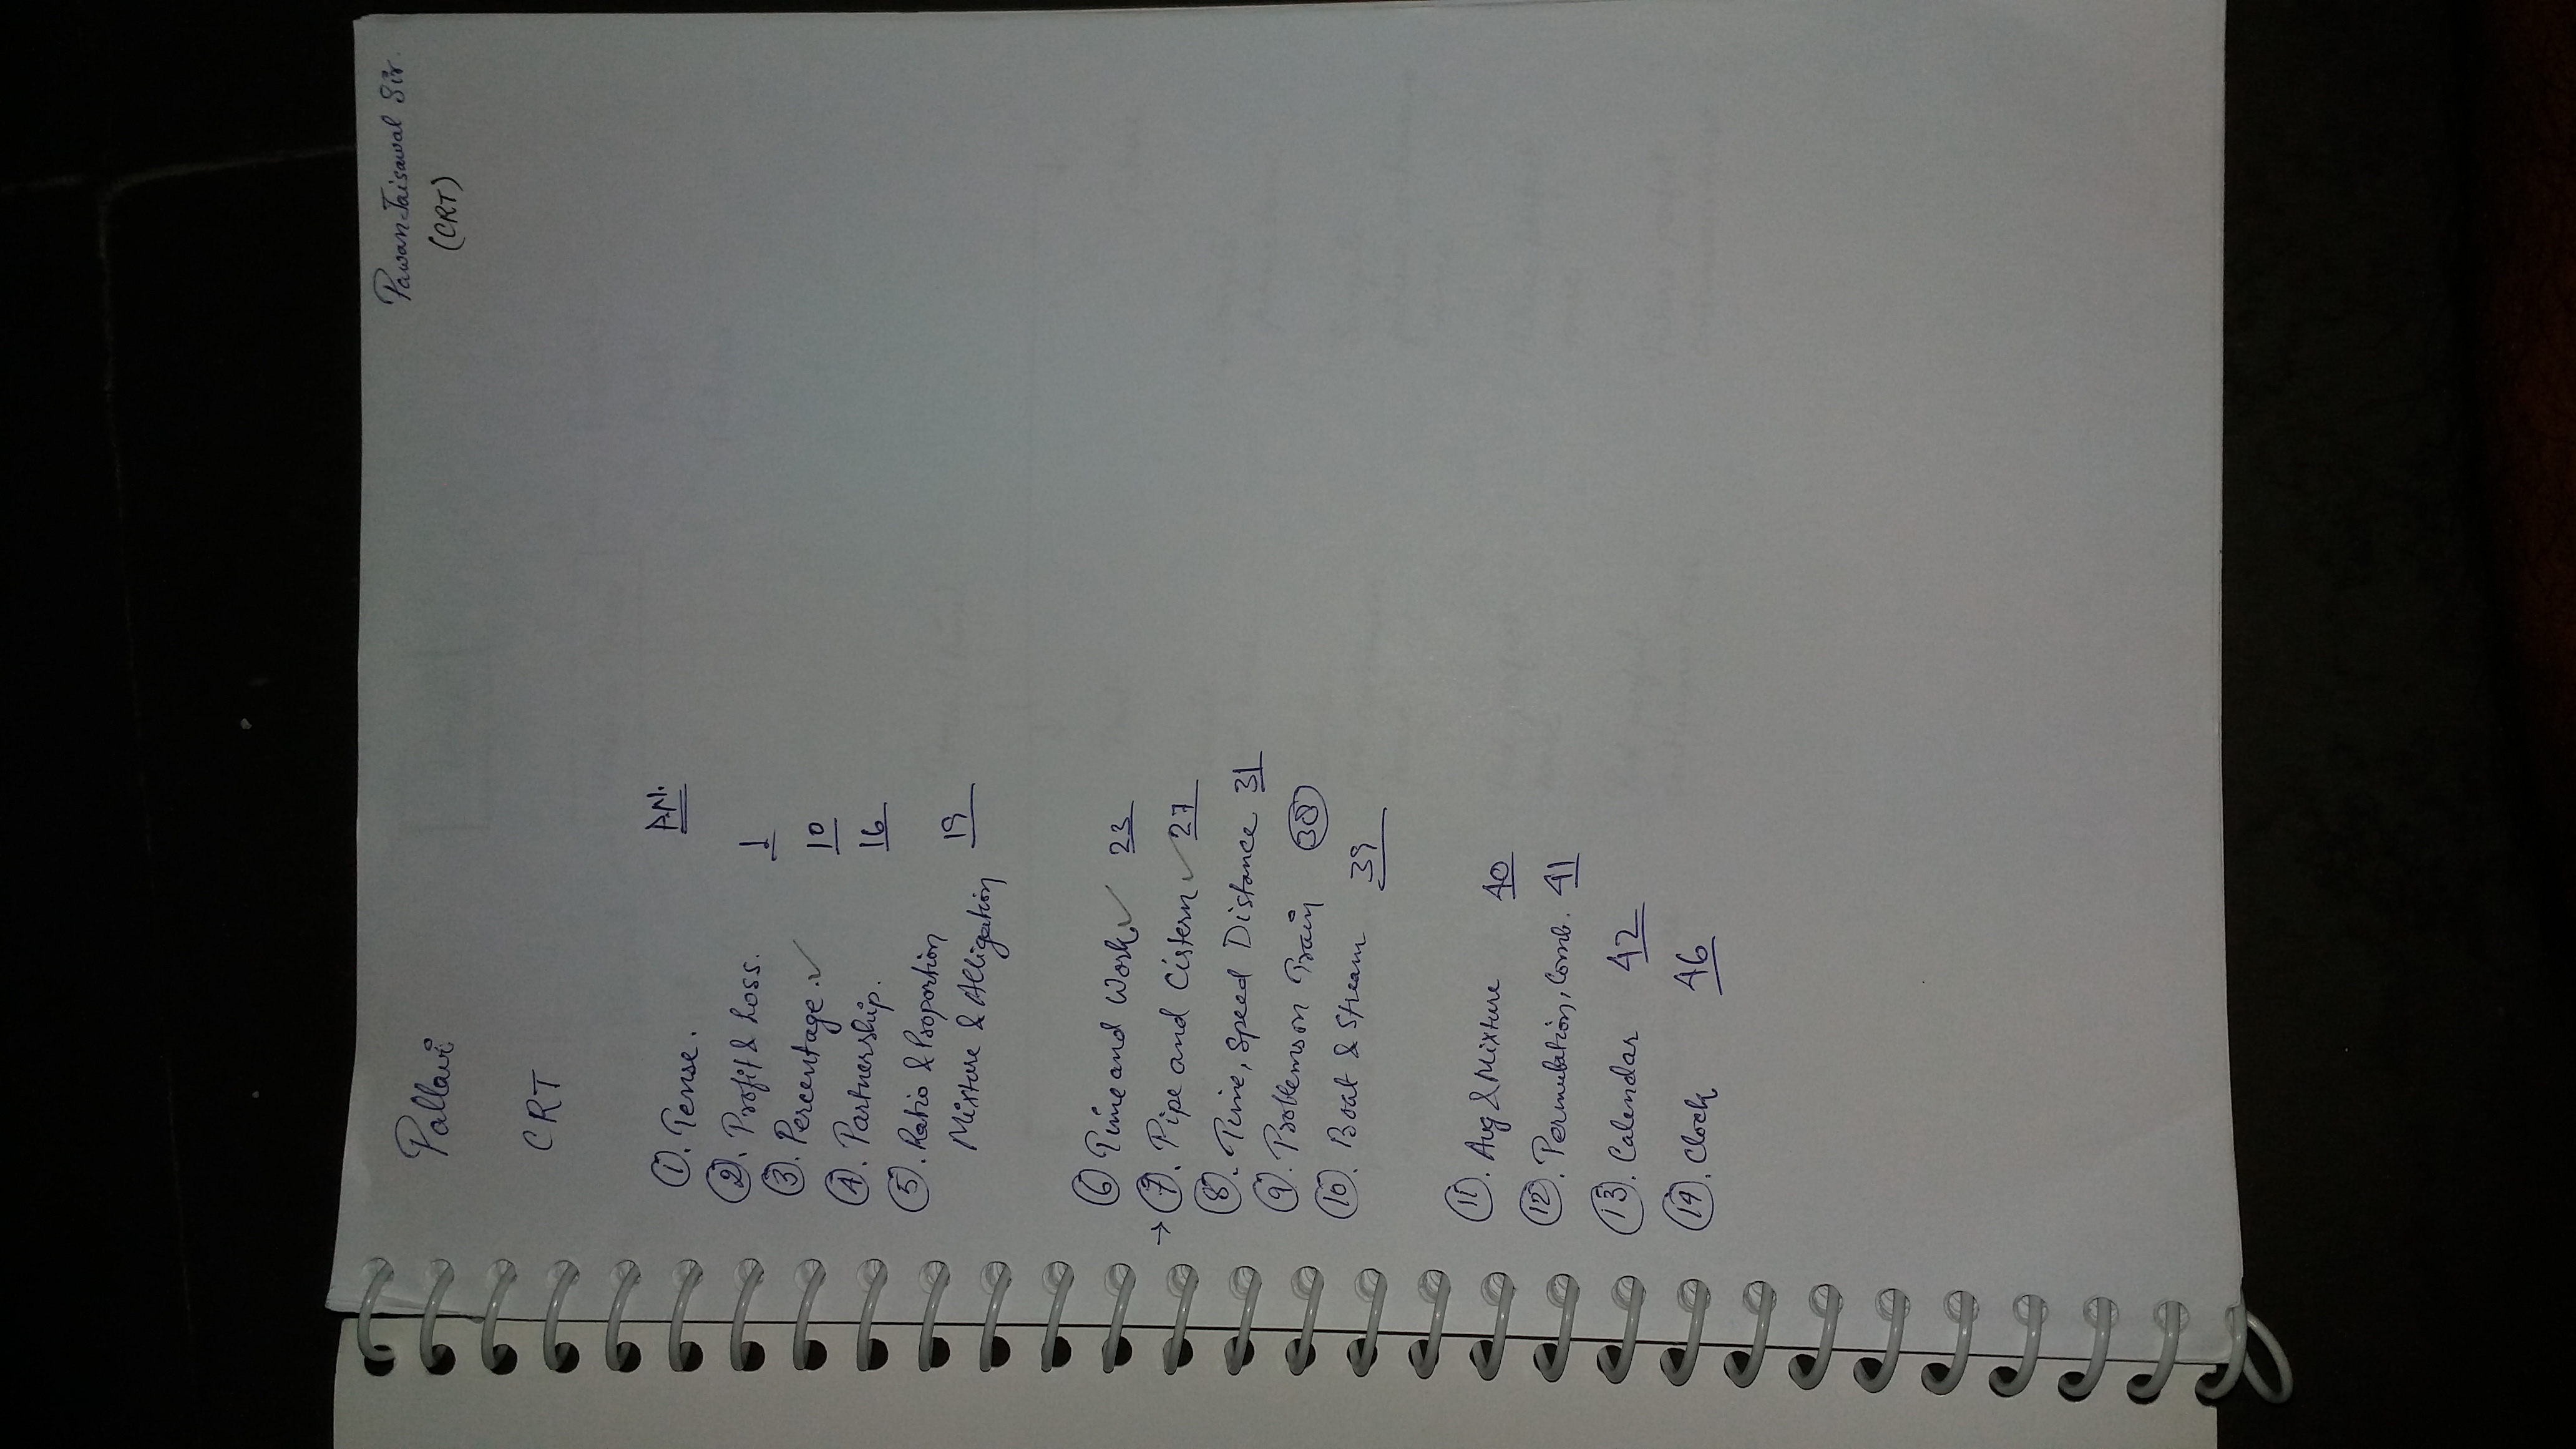 Pawan Jaisawal Sir.
(CRT)
Pallavi
CRT
P.N.
1. Tense.
2. Profit & Loss. 1
3. Percentage. ✓ 10
4. Partnership. 16
5. Ratio & Proportion
Mixture & Alligation 19
6 Time and Work ✓ 23
→ 7. Pipe and Cistern ✓ 27
8. Time, Speed Distance 31
9. Problems on Train 38
10. Boat & Stream 39
11. Avg & Mixture 40
12. Permutation, Comb. 41
13. Calendar 42
14. Clock 46